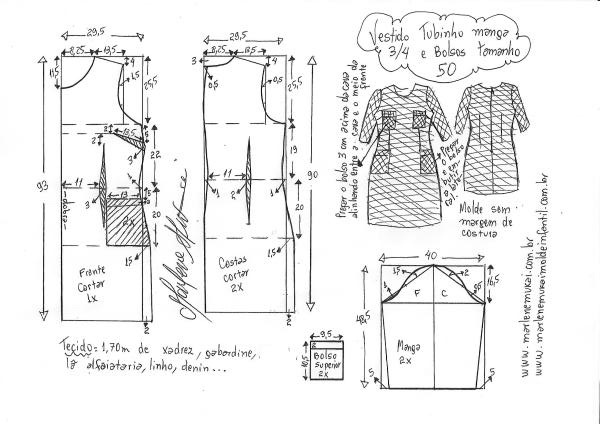 Vestido Tubinho manga
3/4 e Bolsos tamanho
50
29,5
8,25 13,5
4
11,5
1,5
25,5
93
2
13,5
5
2
3
22
11
1
3
13
5
2
20
2x
1,5
Frente
Cortar
1x
2
29,5
8,25 13,5
3
4
0,5
0,5
25,5
90
19
11
1
3
1
20
1,5
Costas
cortar
2x
2
Marlene Mukai
Pregar o bolso 3 cm acima da cava
alinhando entre a cava e o meio da
frente
Molde sem
margem de
costura
40
1,5
2
16,5
F C
48,5
Manga
2x
5
5
9,5
2
10,5
Bolso
superior
2x
Tecido: 1,70m de xadrez, gabardine,
lã alfaiataria, linho, denin...
www.marlenemukai.com.br
www.marlenemukaimoldeinfantil.com.br